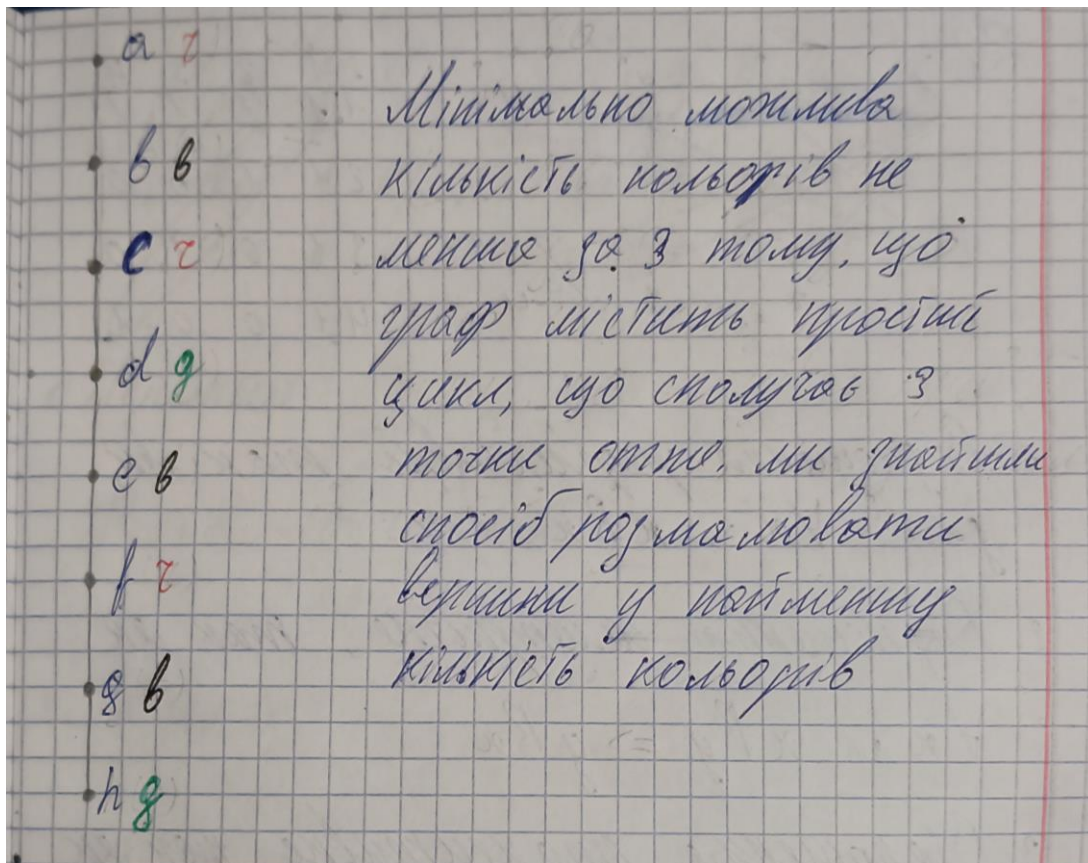 a г
b в
c г
d g
e в
f г
g в
h g
Мінімально можлива
кількість кольорів не
менша за 3 тому, що
граф містить простий
цикл, що сполучає 3
точки отже. ми знайшли
спосіб розмалювати
вершини у найменшу
кількість кольорів